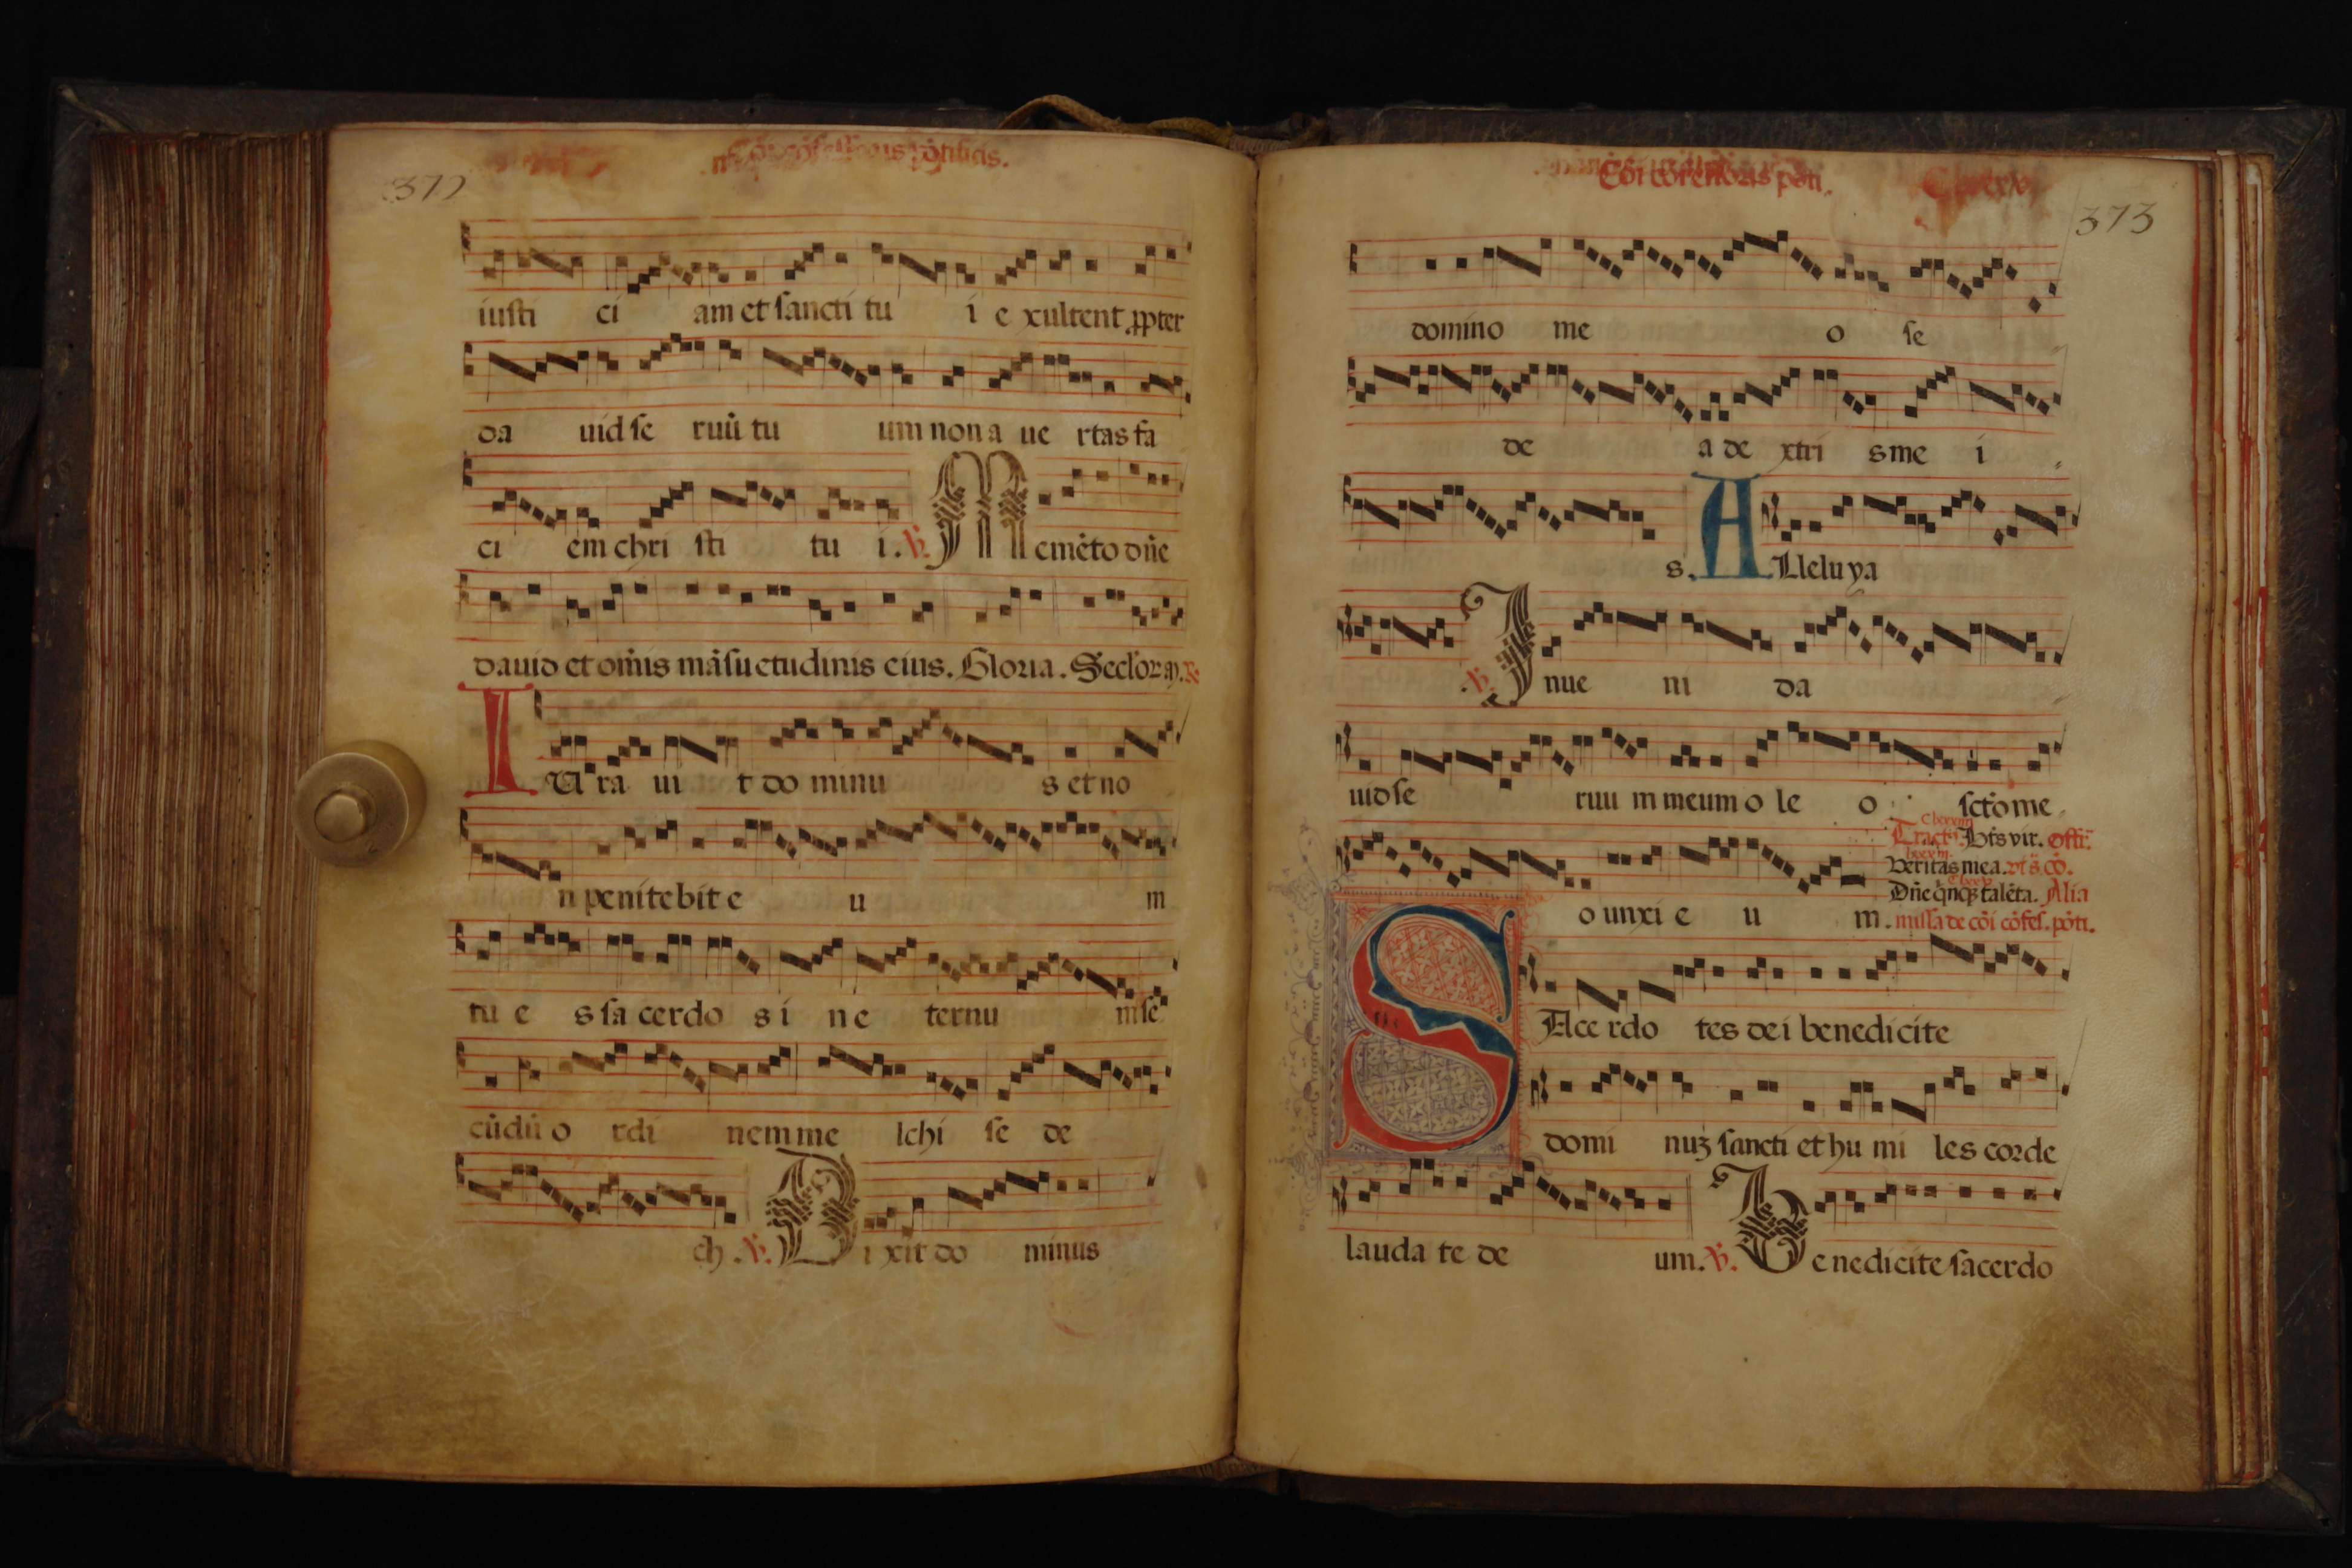 372
cõfessoris põtificis.
iusti ci am et sancti tu i e xultent ꝓpter
da uid se ruũ tu um non a ue rtas fa
ci em chri sti tu i. ℣. M emẽto dñe
dauid et om̃is mãsuetudinis eius. Gloria. Seclor. aͫ.
I Ura ui t do minu s et no
n penitebit e u m
tu e s sa cerdo s i n e ternu m se
cũdũ o rdi nem me lchi se de
ch. ℣. D i xit do minus
Cõi cõfessoris põti.
373
domino me o se
de a de xtri s me i
s. A Lleluya
℣. I nue ni da
uid se ruu m meum o le o sct̃o me
Tract9. Bt̃s vir. Offr̃.
Veritas mea. vt s̃. cõ.
o unxi e u m.
Dñe q̃nqꝫ talẽta. Alia
missa de cõi cõfes. põti.
S Ace rdo tes dei benedicite
domi nuꝫ sancti et hu mi les corde
lauda te de um. ℣. B enedicite sacerdo